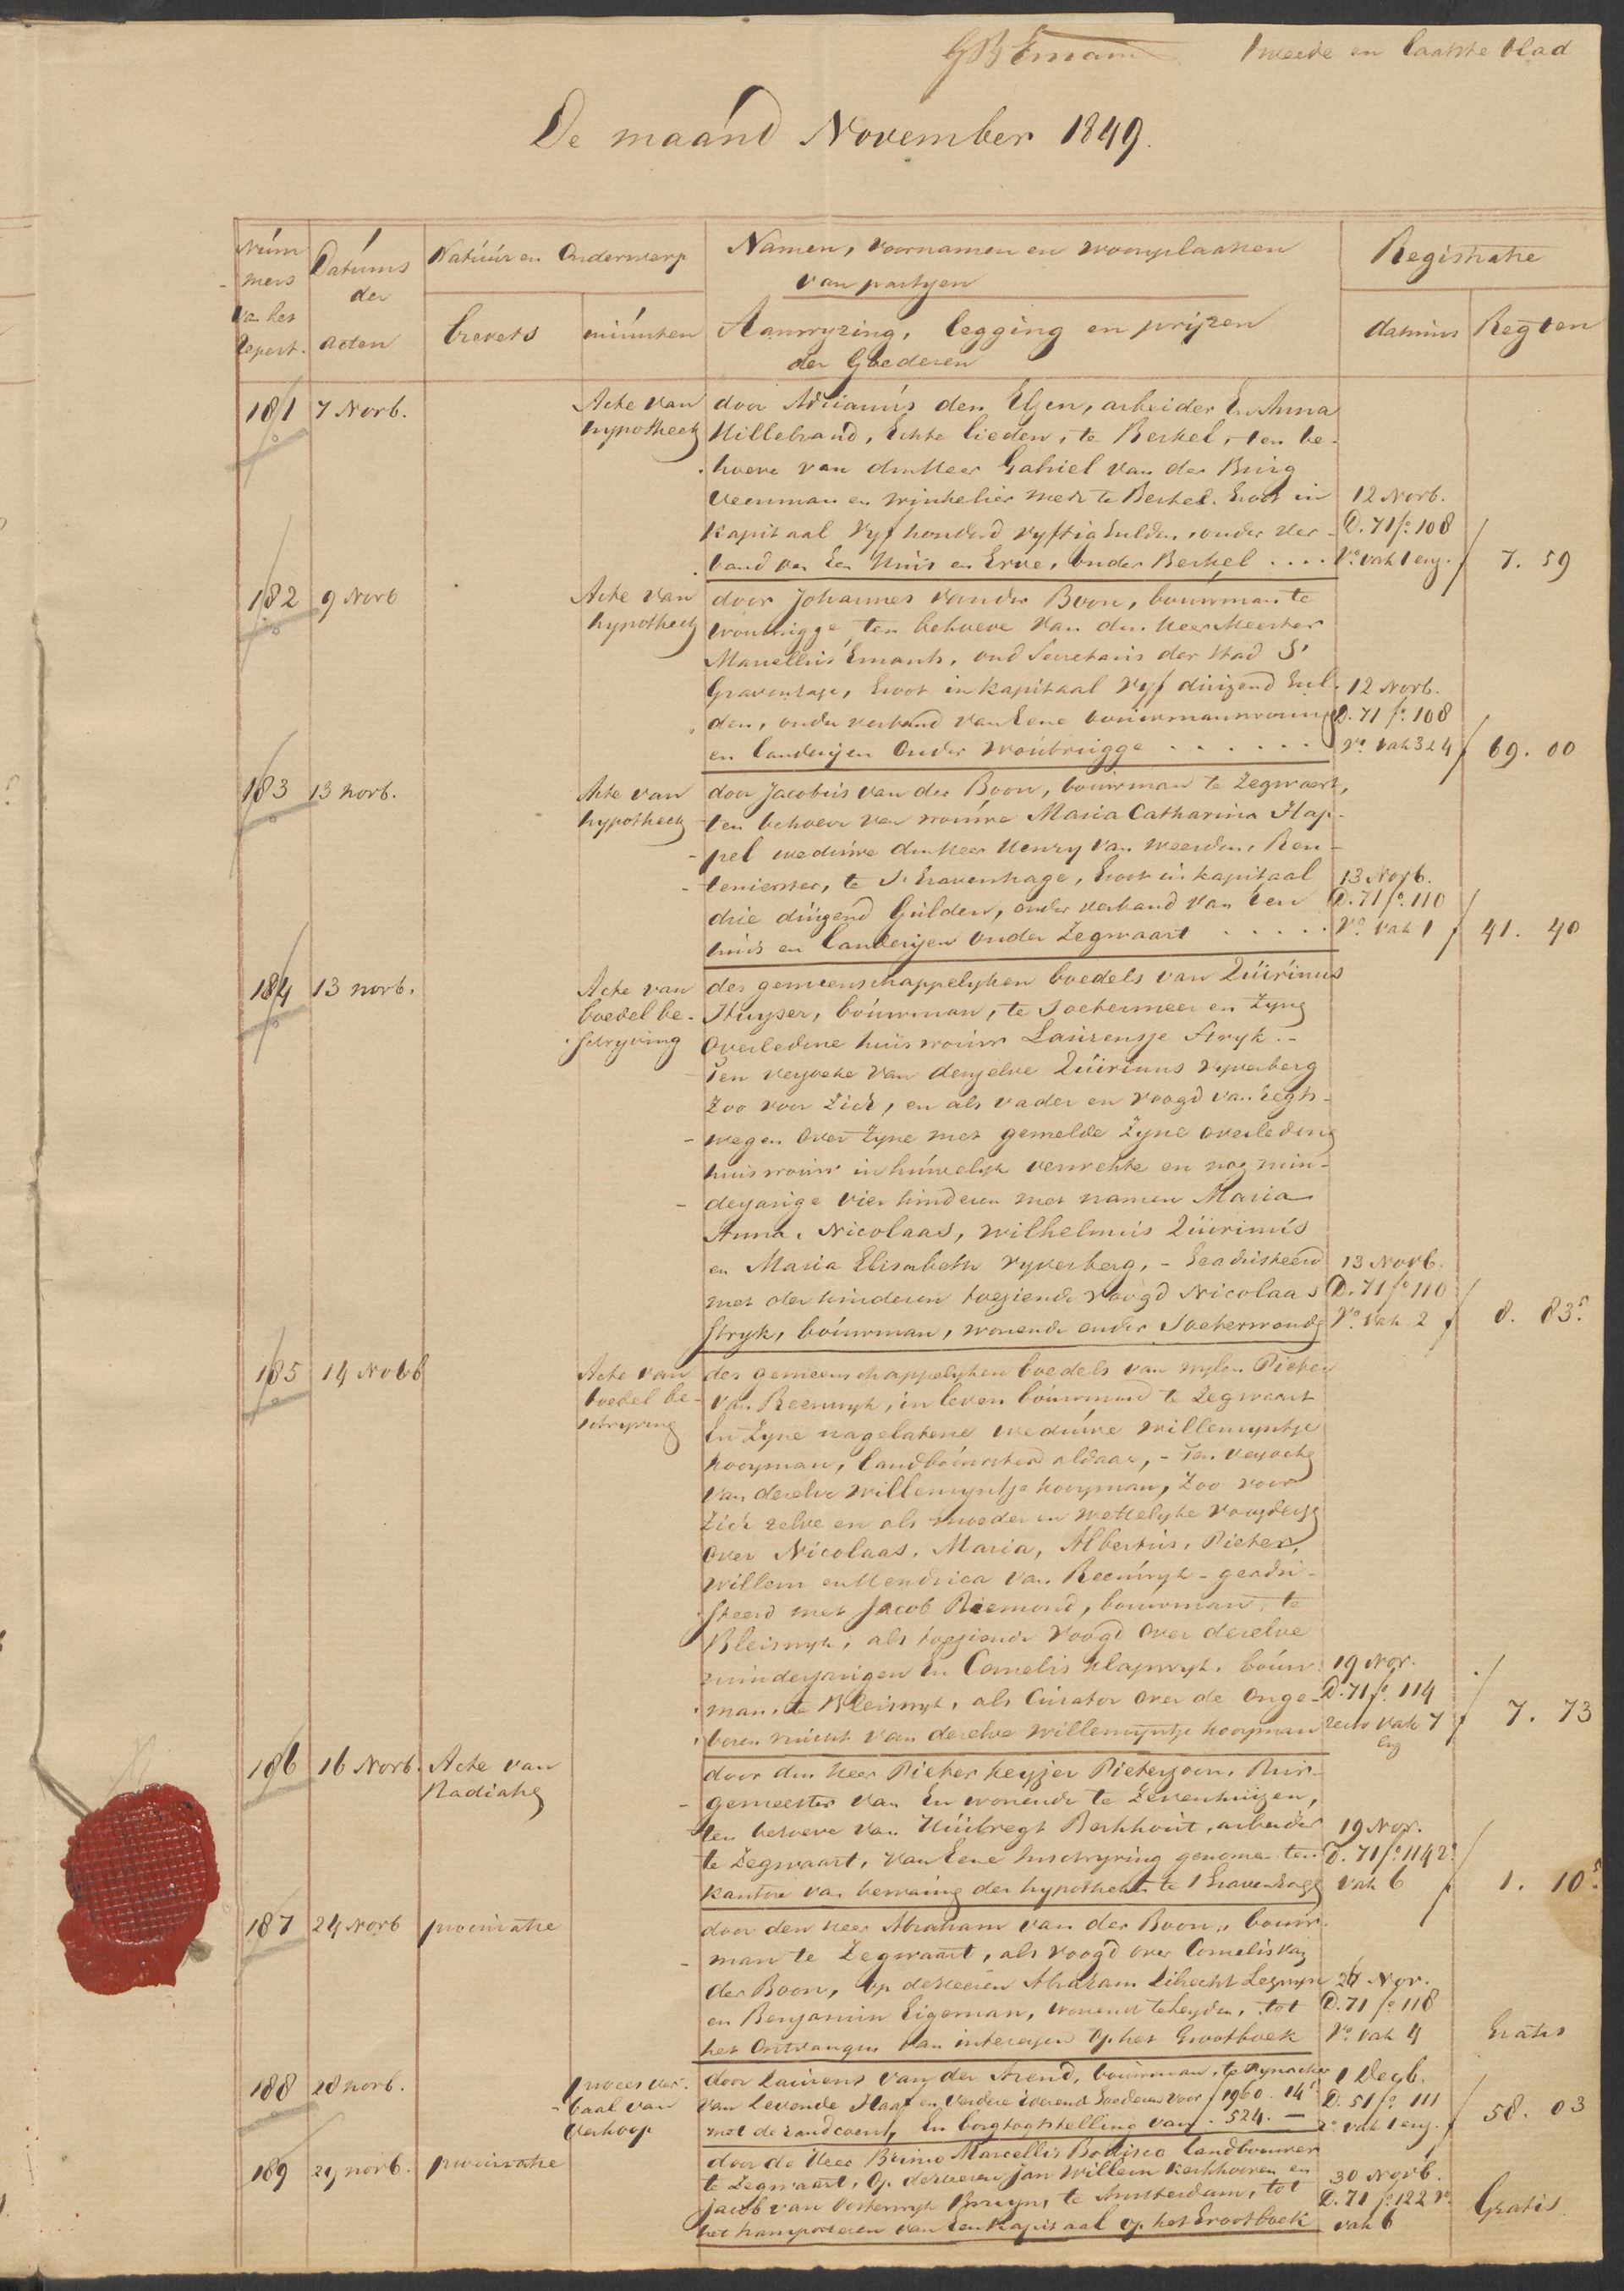 GB Emam Tweede en laatste blad
De maand November 1849.
Num
mers
van het
Repert.
Datums
der
acten
Natuur en Onderwerp
brevets
minuten
Namen, voornamen en woonplaatsen
van partyen
Aanwyzing, legging en prijzen
der Goederen
Registratie
datums
Regten
181 7 Novb.
Acte van
hypotheek
door Adrianus den Elzen, arbeider En Anna
Hillebrand, Echte lieden, te Berkel, ten be-
hoeve van den Heer Gabriel van der Burg
Veenman en winkelier mede te Berkel. Groot in
Kapitaal Vyf honderd vyftig Gulden, onder ver-
band van Een Huis en Erve, onder Berkel ....
12 Novb.
D. 71 fo. 108
Vo. vak 1 env.
7. 59
182 9 Novb
Acte van
hypotheek
door Johannes van der Boon, bouwman te
Woubrugge, ten behoeve van den Heer Meester
Marcellus Emants, oud Secretaris der Stad S'
Gravenhage, Groot in Kapitaal Vyf duizend Gul-
den, onder verband van Eene bouwmanswoning
en landeryen Onder Woubrugge . . . . . .
12 Novb.
D. 71 fo. 108
Vo. vak 3 & 4
69. 00
183 13 novb.
Acte van
hypotheek
door Jacobus van der Boon, bouwman te Zegwaart,
ten behoeve van vrouwe Maria Catharina Hap-
pel weduwe den Heer Henry van Weerden, Ren-
tenierster, te S' Gravenhage, Groot in kapitaal
drie duizend Gulden, onder verband van Een
huis en landeryen onder Zegwaart . . . . .
13 Novb.
D. 71 fo. 110
Vo. vak 1
41. 40
184 13 novb.
Acte van
boedel be-
schryving
des gemeenschappelyken boedels van Quirinus
Huyser, bouwman, te Soetermeer en Zyne
Overledene huisvrouw Laurensje Stryk.-
Ten verzoeke van denzelve Quirinus Vyverberg
Zoo voor Zich, en als vader en voogd van regts-
wegen over Zyne met gemelde Zyne overledene
huisvrouw in huwelyk verwekte en nog min-
derjarige vier kinderen met namen Maria
Anna, Nicolaas, Wilhelmus Quirinus
en Maria Elisabeth Vyverberg, - Geadsisteerd
met der kinderen toeziende Voogd Nicolaas
Stryk, bouwman, wonende onder Soeterwoude
13 Novb.
D. 71 fo. 110
Vo. vak 2
8. 83.5
185 14 Novb
Acte van
boedel be-
schryving
des gemeenschappelyken boedels van wylen Pieter
van Reeuwyk, in leven bouwman te Zegwaart
En Zyne nagelatene weduwe Willemyntje
Kooyman, landbouwster aldaar, - Ten verzoeke
van dezelve Willemyntje Kooyman, Zoo voor
Zich zelve en als moeder en wettelyke voogdesse
Over Nicolaas, Maria, Albertus, Pieter,
Willem en Hendrica van Reeuwyk - geadsi-
steerd met Jacob Riemond, bouwman, te
Bleiswyk, als toeziende Voogd Over dezelve
minderjarigen En Cornelis Klapwyk, bouw-
man, te Bleiswyk, als Curator over de Onge-
boren vrucht van dezelve Willemyntje Kooyman
19 Nov.
D. 71 fo. 114
recto vak 7
env
7. 73
186 16 Novb.
Acte van
Radiatie
door den Heer Pieter Keyzer Pieterzoon, Bur-
gemeester van En wonende te Zevenhuizen,
ten behoeve van Huibregt Berkhout, arbeider
te Zegwaart, van Eene Inschryving genomen ten
kantore van bewaring der hypotheken te S Gravenhage
19 Nov.
D. 71 fo. 114 2o
vak 6
1. 10 5
187 24 Novb
procuratie
door den Heer Abraham van der Boon, bouw-
man te Zegwaart, als voogd over Cornelis van
der Boon, Op de Heeren Abraham
en Benjamin Eigeman, wonende te Leyden, tot
het Ontvangen van interessen Op het Grootboek
26 Nov.
D. 71 fo 118
Vo. vak 4
Gratis
188 28 novb.
Proces ver-
baal van
Verkoop
door Laurens van der Arend, bouwman, te Pynacker
van Levende Have en verdere roerende Goederen voor f 1960. 14
met de randcoent, En borgtogtstelling van . 524. —
1 Decb.
D. 51 fo. 111
ro vak 1 env.
58. 03
189 29 novb.
procuratie
door de Heer Bruno Marcellis Bodisco landbouwer
te Zegwaart, Op de Heeren Jan Willem Kerkhoven en
Jacob van Oosterwyk Bruyn, te Amsterdam, tot
het transporteren van Een Kapitaal Op het Grootboek
30 Novb.
D. 71 fo. 122 vo.
vak 6
Gratis